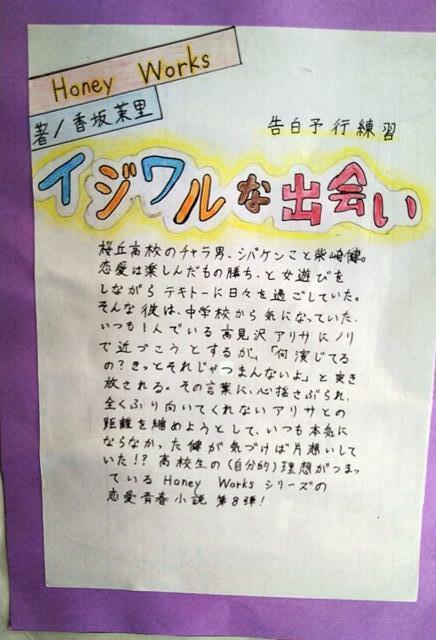 Honey Works
著/香坂茉里
告白予行練習
イジワルな出会い
桜丘高校のチャラ男、シバケンこと柴崎健。
恋愛は楽しんだもの勝ち、と女遊びを
しながらテキトーに日々を過ごしていた。
そんな彼は、中学校から気になっていた、
いつも1人でいる高見沢アリサにノリ
で近づこうとするが、「何演じてる
の?きっとそれじゃつまんないよ」と突き
放される。その言葉に、心揺さぶられ、
全くふり向いてくれないアリサとの
距離を縮めようとして、いつも本気に
ならなかった健が気づけば片想いして
いた!?高校生の(自分的)理想がつまっ
ているHoney Worksシリーズの
恋愛青春小説 第8弾!